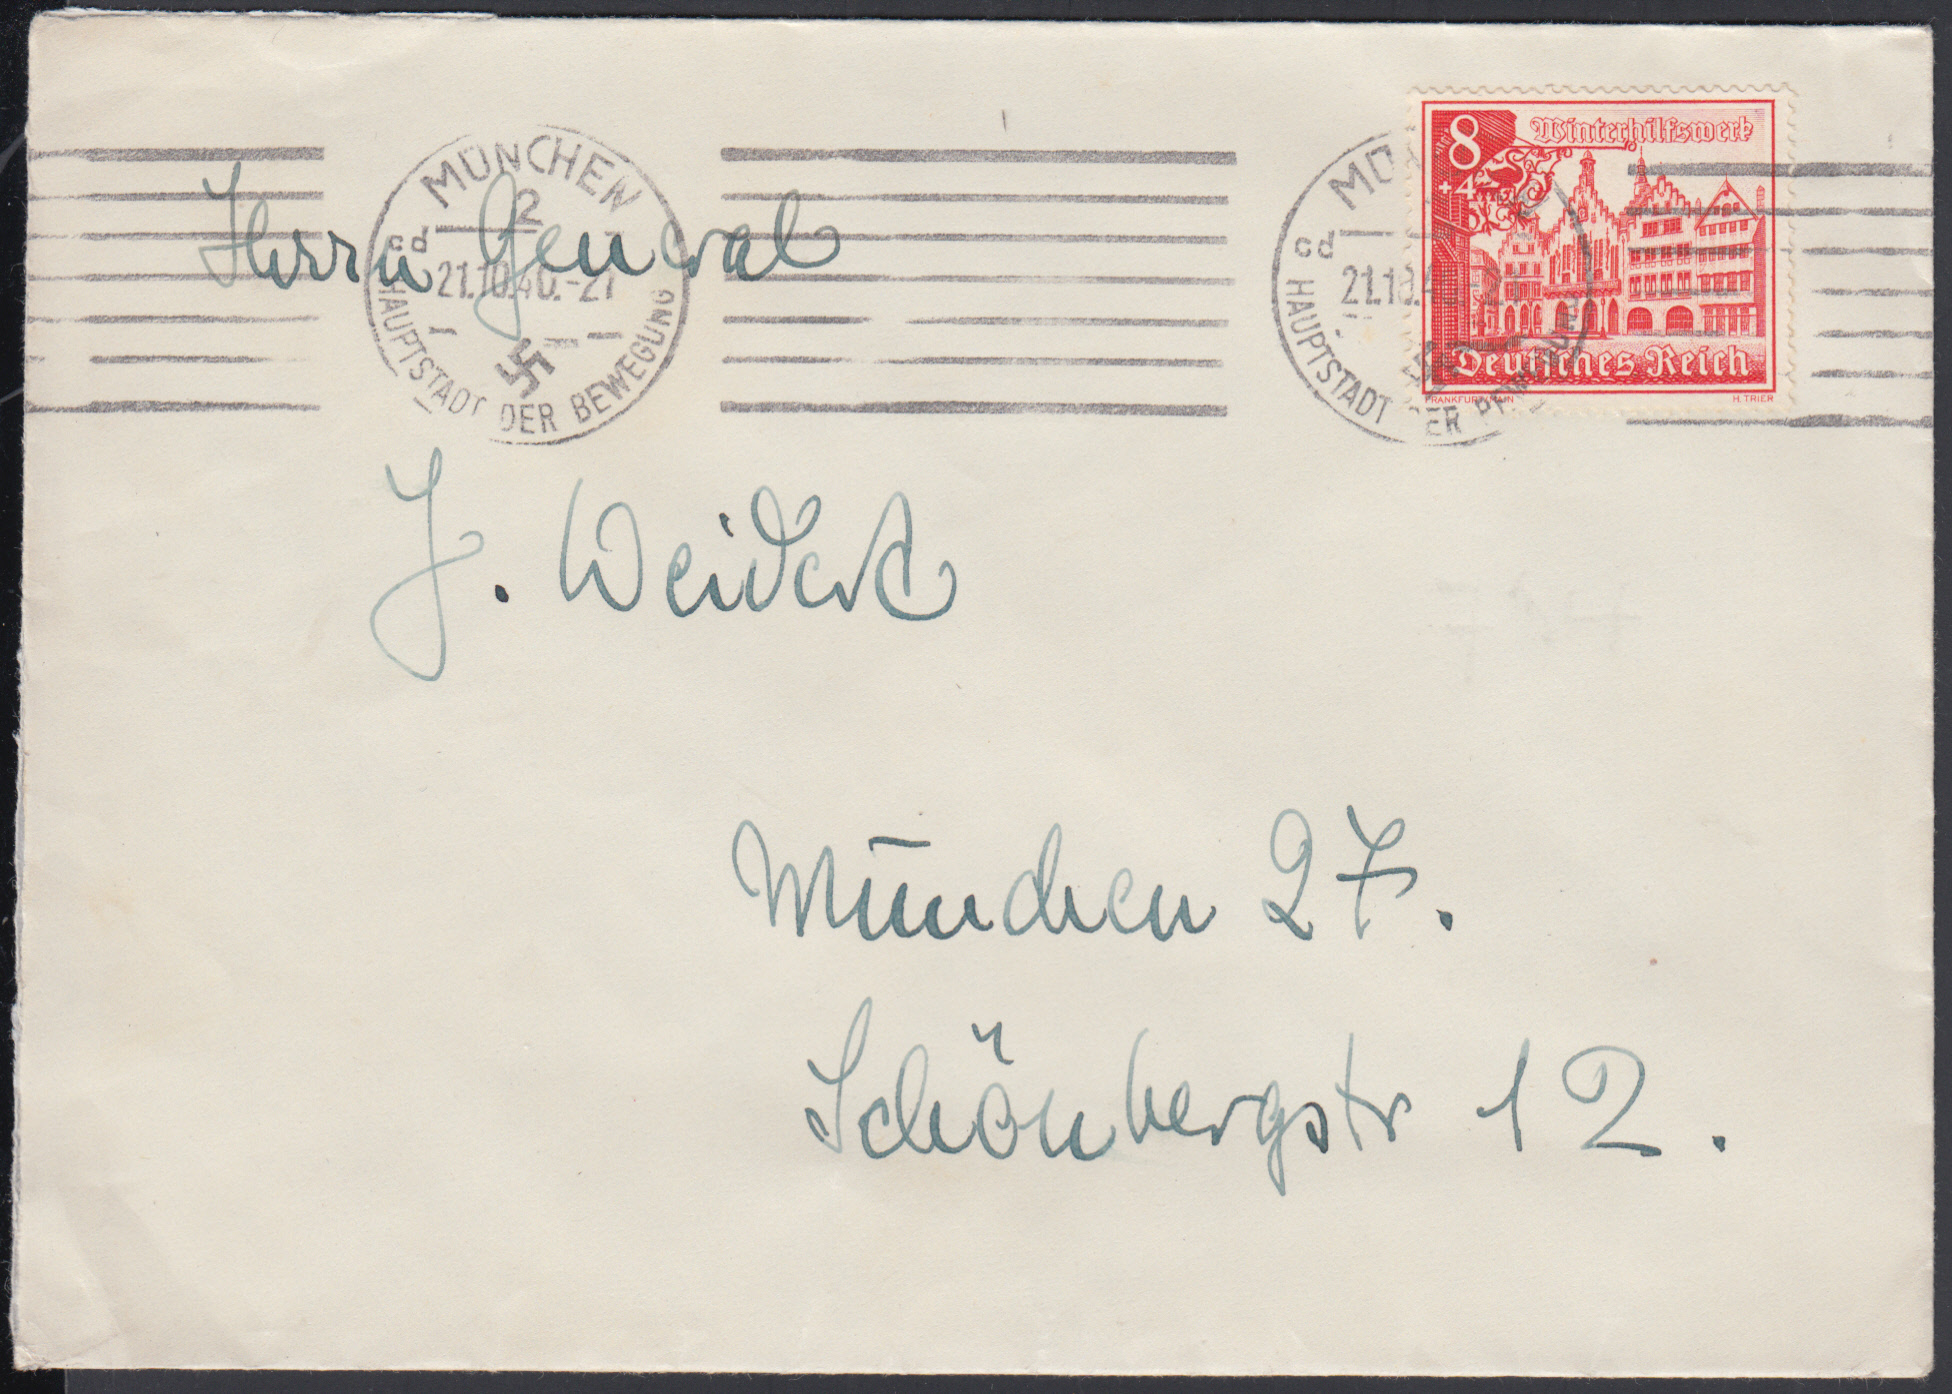 MÜNCHEN
2
cd
21.10.40.-21
HAUPTSTADT DER BEWEGUNG
cd
HAUPTSTADT DER
8
+4
Winterhilfswerk
Deutsches Reich
FRANKFURT/MAIN
H. TRIER
Herrn General
J. Weidert
München 27.
Schönbergstr 12.